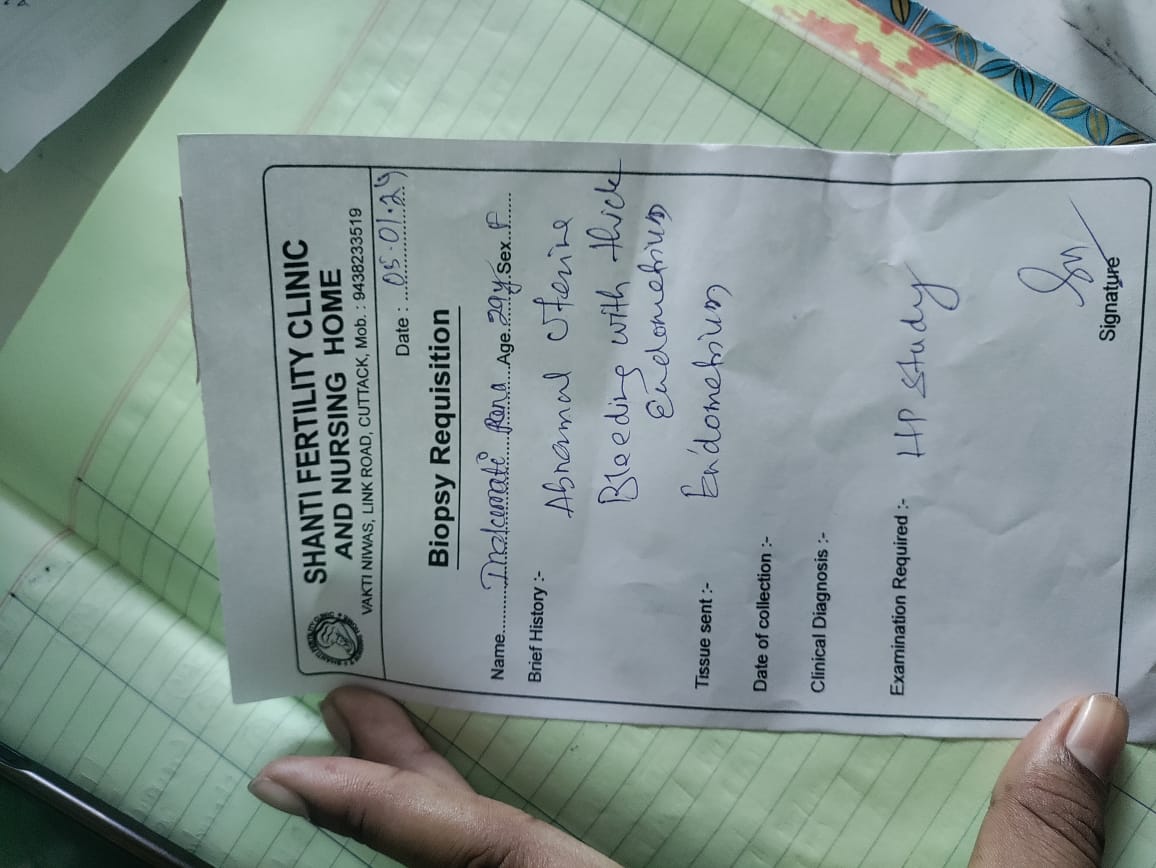 SHANTI FERTILITY CLINIC
AND NURSING HOME
VAKTI NIWAS, LINK ROAD, CUTTACK, Mob. : 9438233519
Date : 05.01.24
Biopsy Requisition
Name Malamati Rana Age 29y Sex F
Brief History :- Abnormal Uterine
Bleeding with thick
Endometrium
Tissue sent :- Endometrium
Date of collection :-
Clinical Diagnosis :-
Examination Required :- HP Study
Signature